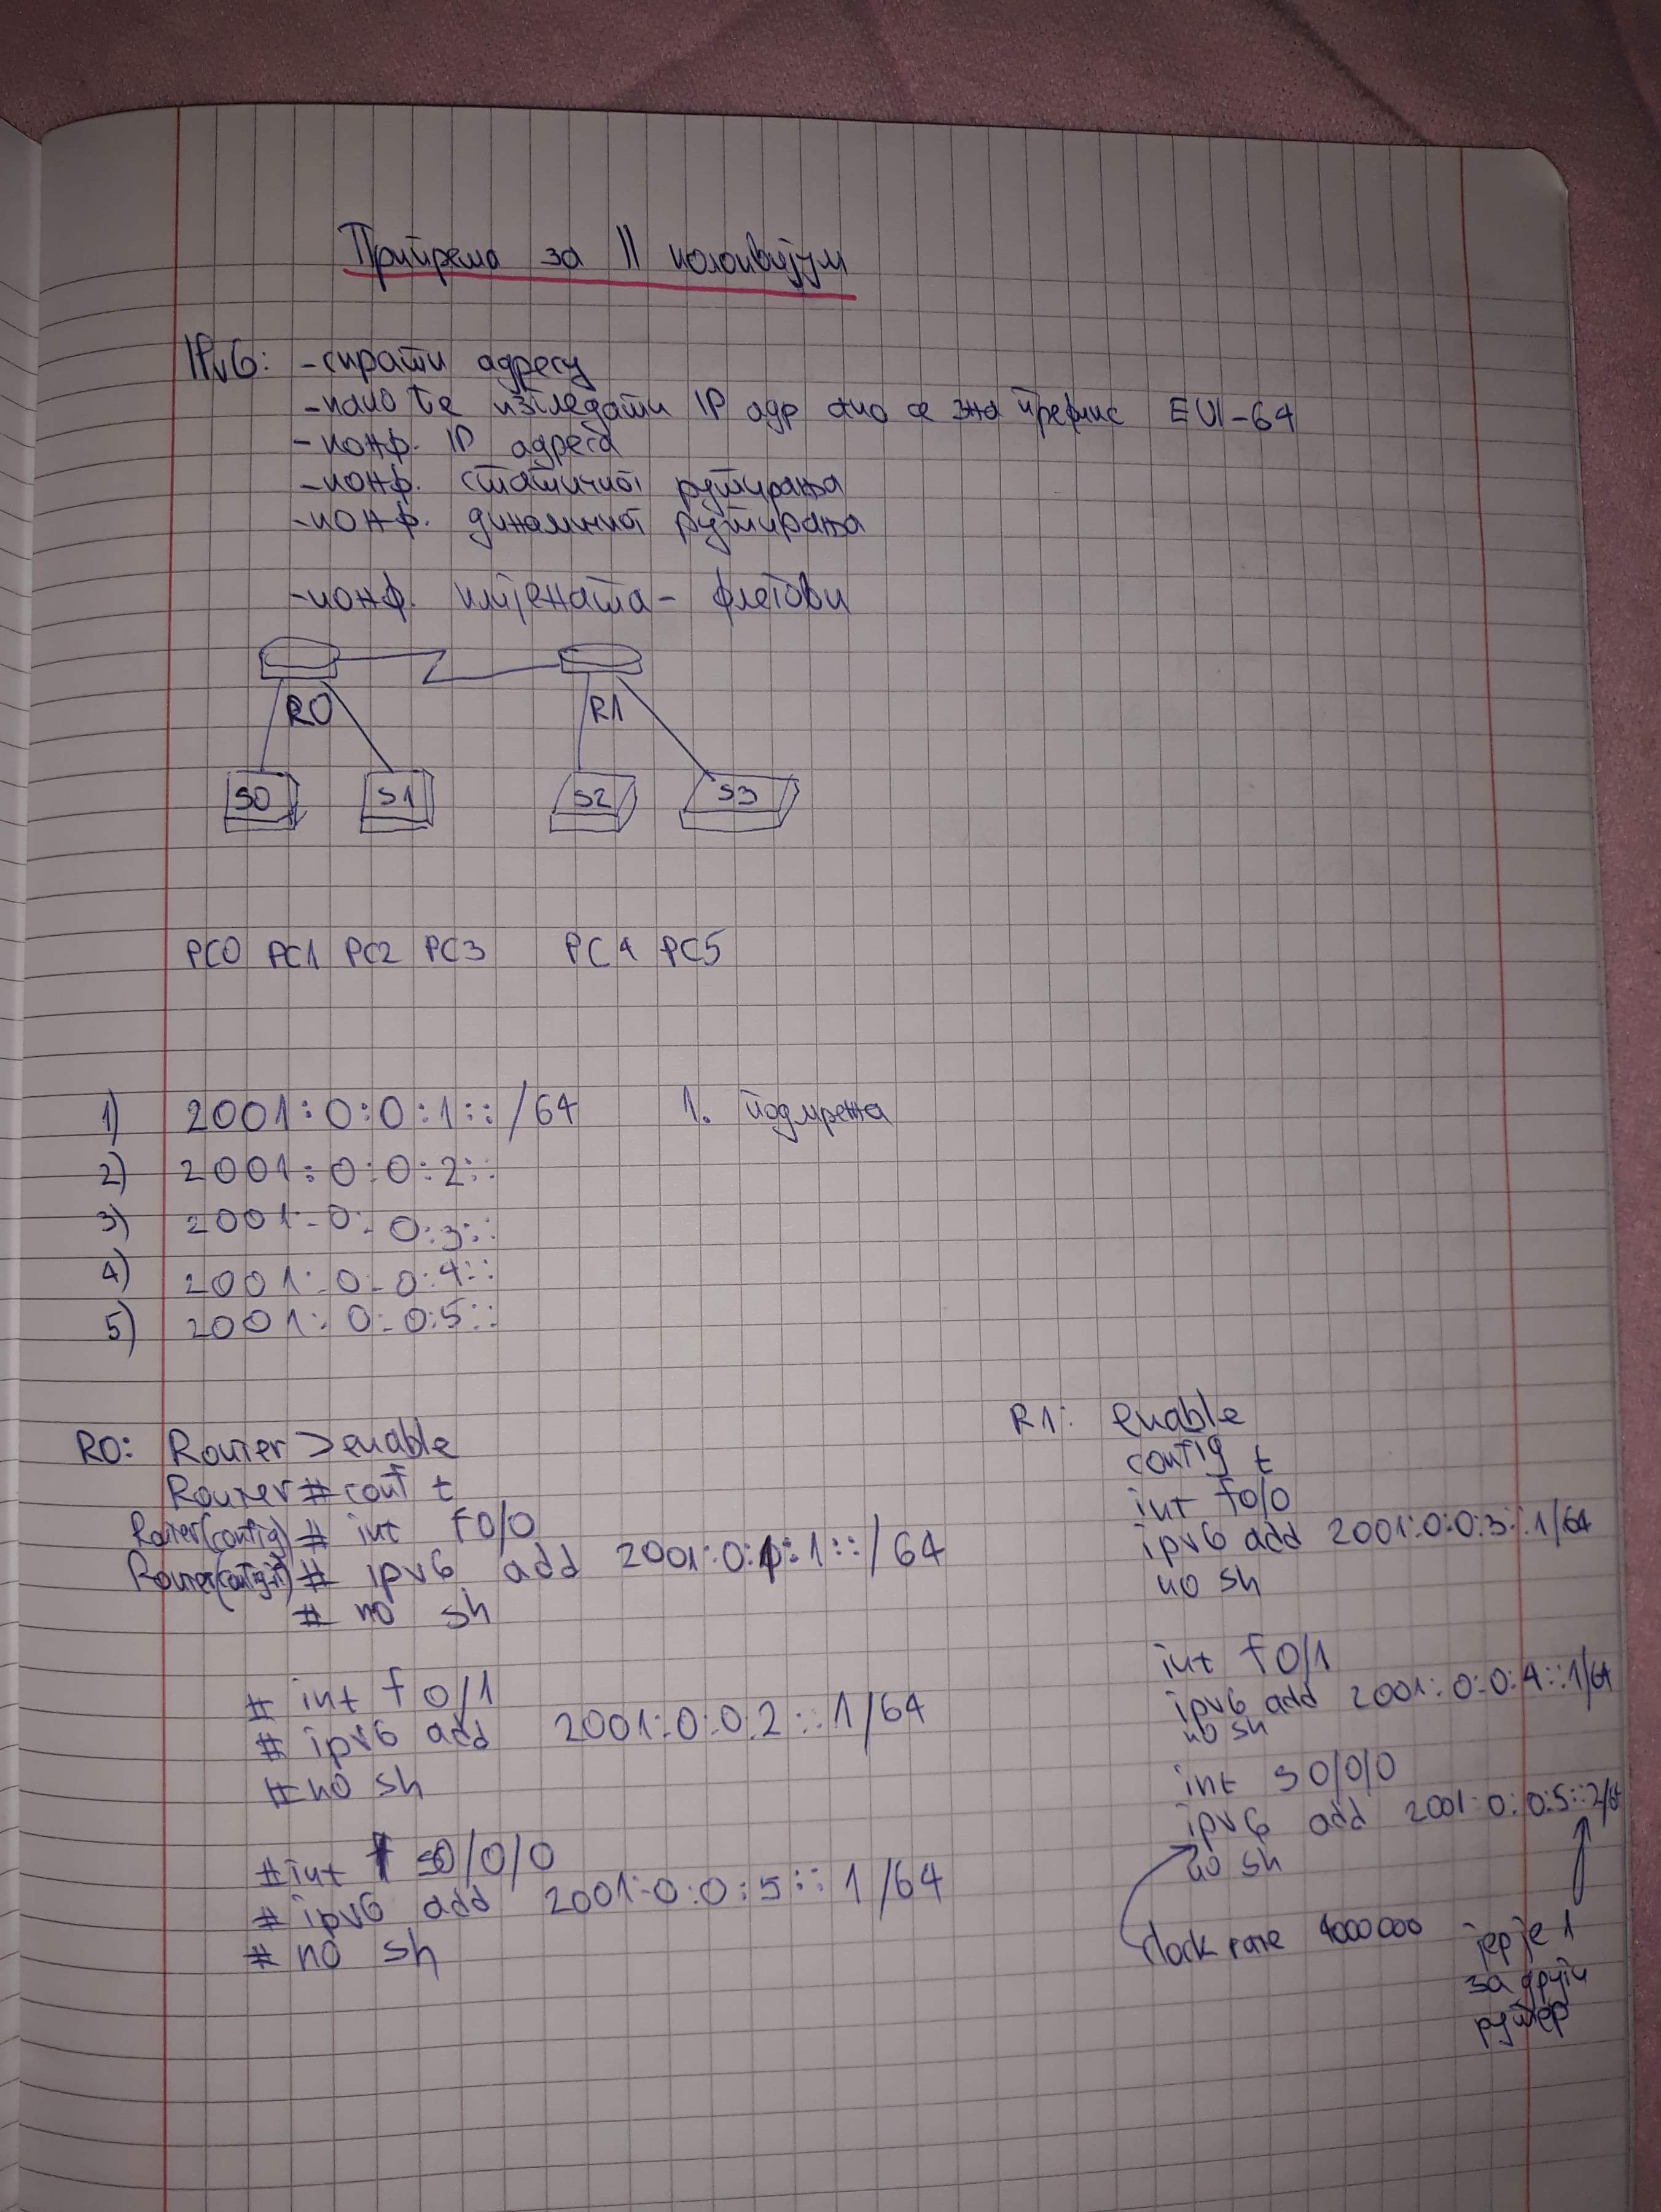 Припрема за II колоквијум
IPv6: - скрати адресу
- како ће изгледати IP адр ако се зна префикс EUI-64
- конф. IP адреса
- конф. статичког рутирања
- конф. динамичког рутирања
- конф. клијената - флегови
R0 R1
S0 S1 S2 S3
PC0 PC1 PC2 PC3 PC4 PC5
1) 2001:0:0:1::/64 1. подмрежа
2) 2001:0:0:2::
3) 2001:0:0:3::
4) 2001:0:0:4::
5) 2001:0:0:5::
R0: Router>enable
Router# conf t
Router(config)# int f0/0
Router(config-if)# ipv6 add 2001:0:0:1::/64
# no sh
# int f0/1
# ipv6 add 2001:0:0:2::1/64
# no sh
# int s0/0/0
# ipv6 add 2001:0:0:5::1/64
# no sh
R1: enable
config t
int f0/0
ipv6 add 2001:0:0:3::1/64
no sh
int f0/1
ipv6 add 2001:0:0:4::1/64
no sh
int s0/0/0
ipv6 add 2001:0:0:5::2/64
no sh
clock rate 4000000
јер је 1
за други
рутер